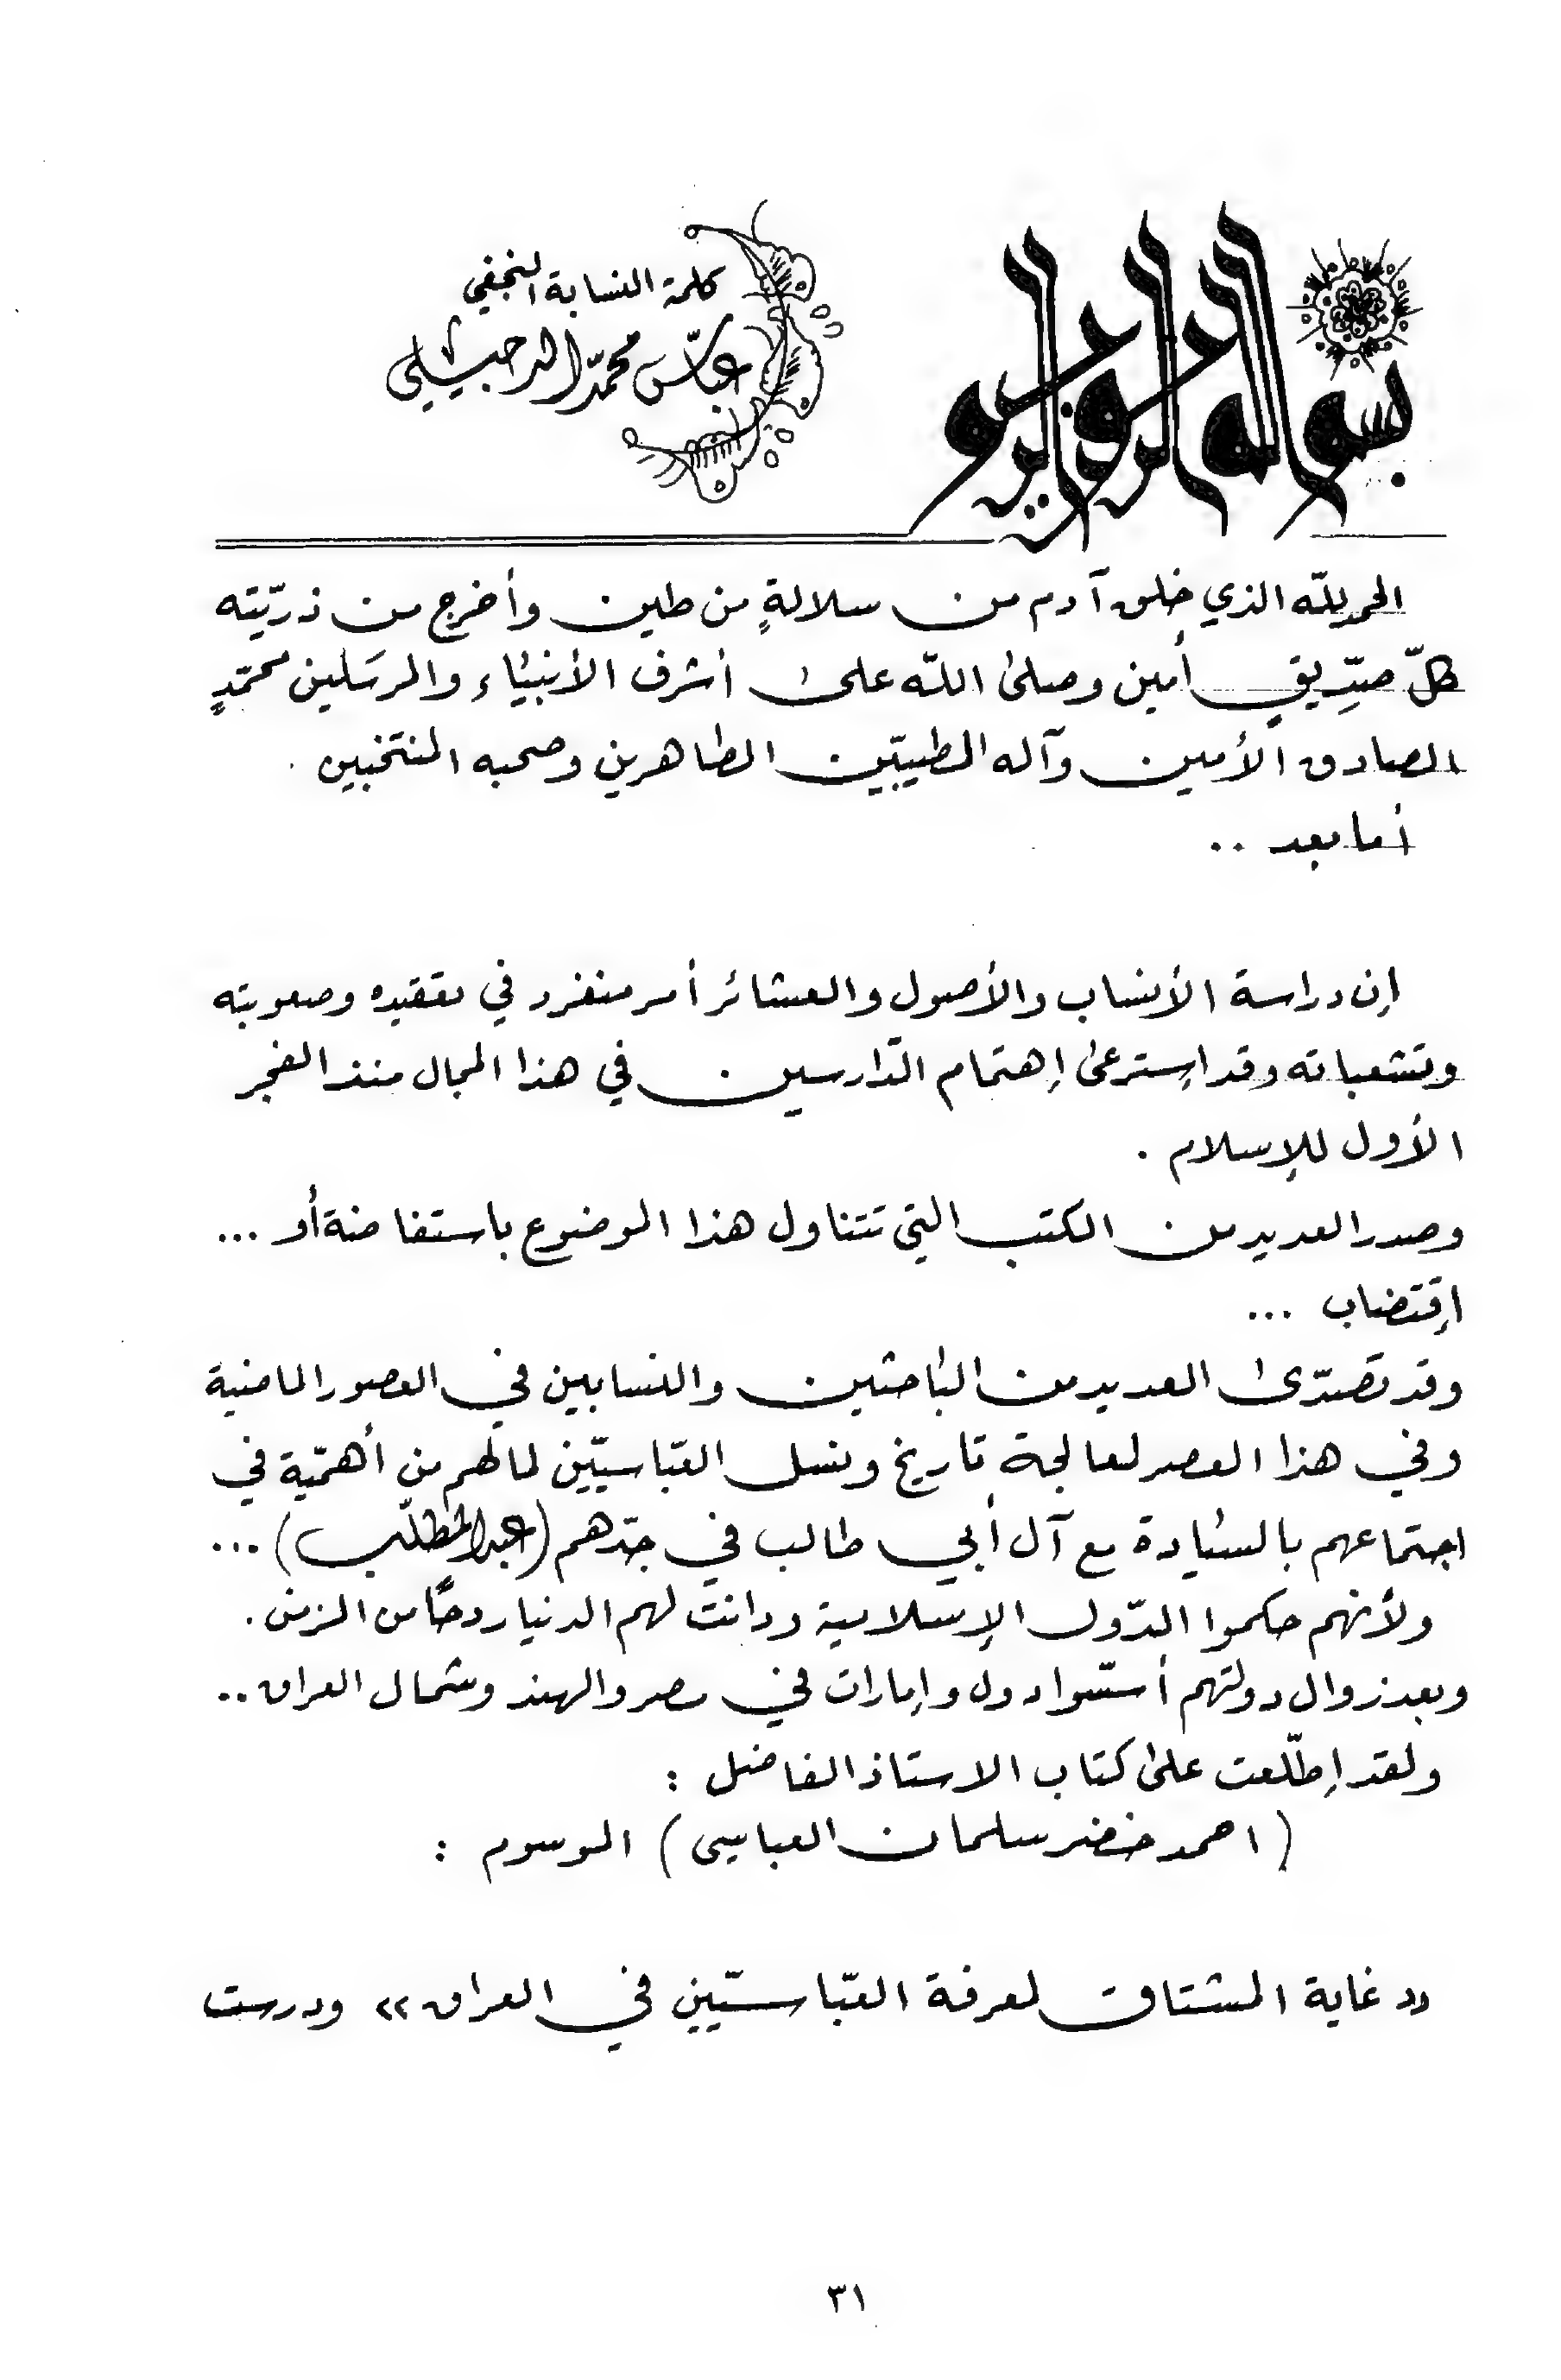 بسم الله الرحمن الرحيم
كلمة النسابة النجفي
عباس محمد الدجيلي
الحمد لله الذي خلق آدم من سلالةٍ من طين وأخرج من ذريّته
كلّ صدِّيقٍ أمين وصلىٰ اللّه علىٰ أشرف الأنبياء والمرسَلين محمّدٍ
الصادق الأمين وآله الطيبّين الطاهرين وصحبه المنتخبين .
أما بعد ..
إن دراسة الأنساب والأصول والعشائر أمر منفرد في تعقيده وصعوبته
وتشعباته وقد إسترعىٰ إهتمام الدّارسين في هذا المجال منذ الفجر
الأول للإسلام .
وصدر العديد من الكتب التي تتناول هذا الموضوع باستفاضة أو ...
إقتضاب ...
وقد تصَدّىٰ العديد من الباحثين والنسابين في العصور الماضية
وفي هذا العصر لمعالجة تاريخ ونسل العبّاسيّين لما لهم من أهمّية في
اجتماعهم بالسيادة مع آل أبي طالب في جدّهم (عبد المطلّب) ...
ولأنهم حكموا الدّول الإسلامية ودانت لهم الدنيا ردحًا من الزمن .
وبعد زوال دولتهم أسّسوا دول وإمارات في مصر والهند وشمال العراق ..
ولقد إطّلعت علىٰ كتاب الاستاذ الفاضل :
( احمد خضر سلمان العباسي ) الموسوم :
« غاية المشتاق لمعرفة العبّاسيّين في العراق » ودرست
٣١